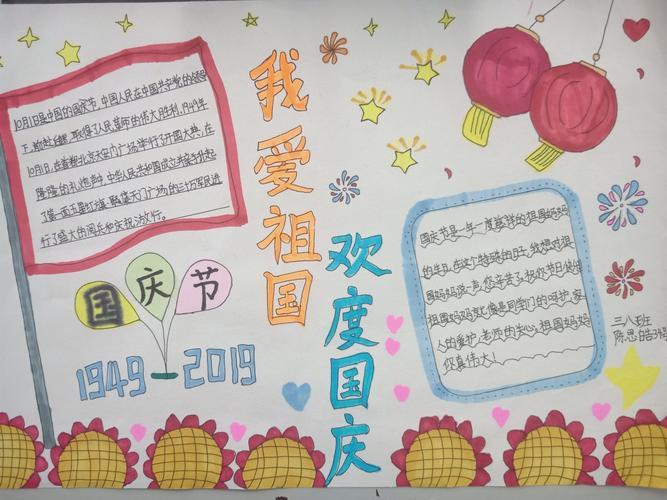 10月1日是中国的国庆节,中国人民在中国共产党的领导
下,前赴后继,取得了人民革命的伟大胜利,1949年
10月1日,在首都北京天安门广场举行了开国大典,在
隆隆的礼炮声中,中华人民共和国成立并亲手升起
了第一面五星红旗,聚集天门广场的三十万军民进
行了盛大的阅兵和庆祝游行。
我爱祖国
欢度国庆
国庆节
1949 2019
国庆节是一年一度慈祥的祖国妈妈
的生日,在这个特殊的日子,我想对祖
国妈妈说一声,您辛苦了,祝你节日快乐
祖国妈妈就像是同学们的呵护,家
人的爱护,老师的关心,祖国妈妈
你真伟大!
三八班
陈思皓